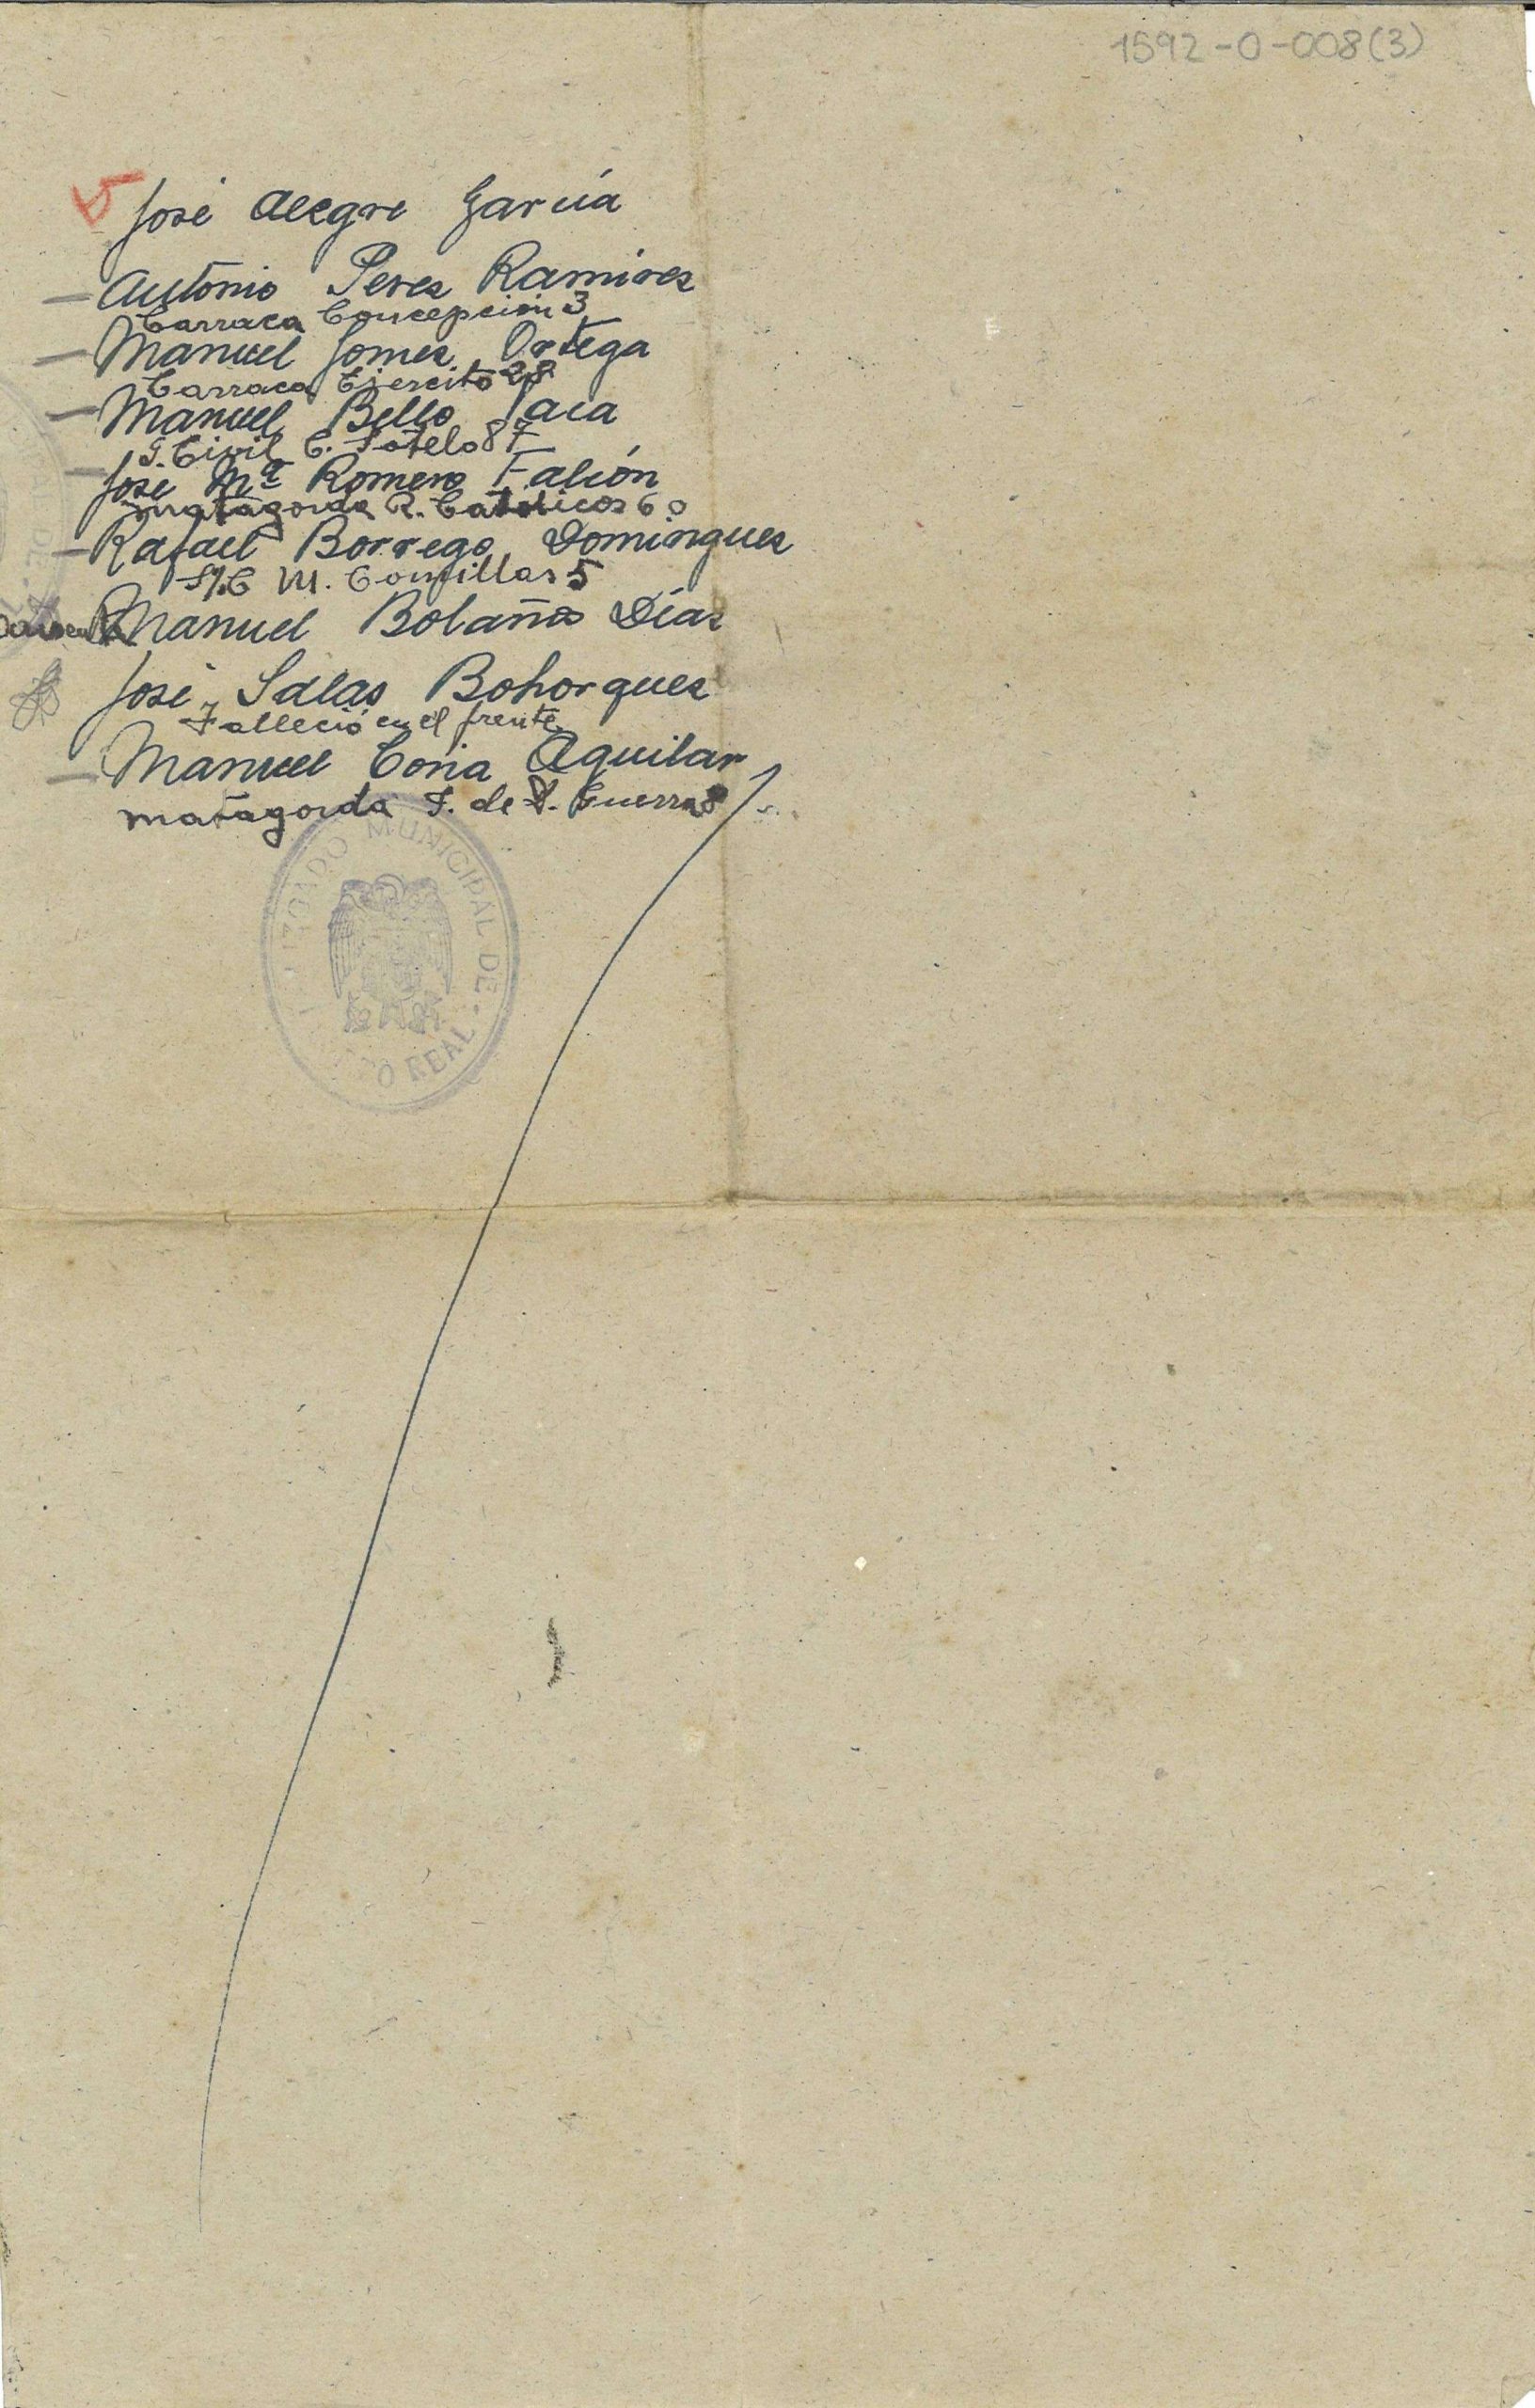 1592-0-008(3)
José Alegre García
— Antonio Peres Ramires
Carraca Concepción 3
— Manuel Gomes Ortega
Carraca Ejercito 28
— Manuel Bello Jaca
G. Civil C. Sotelo 87
— José Mª Romero Falión
Matagorda R. Catolicos 60
— Rafael Borrego Domingues
S/C M. Comillas 5
Manuel Bolaño Días
José Salas Bohorques
Falleció en el frente
— Manuel Coria Aguilar
matagorda F. de A. Guerra 8
JUZGADO MUNICIPAL DE
REAL